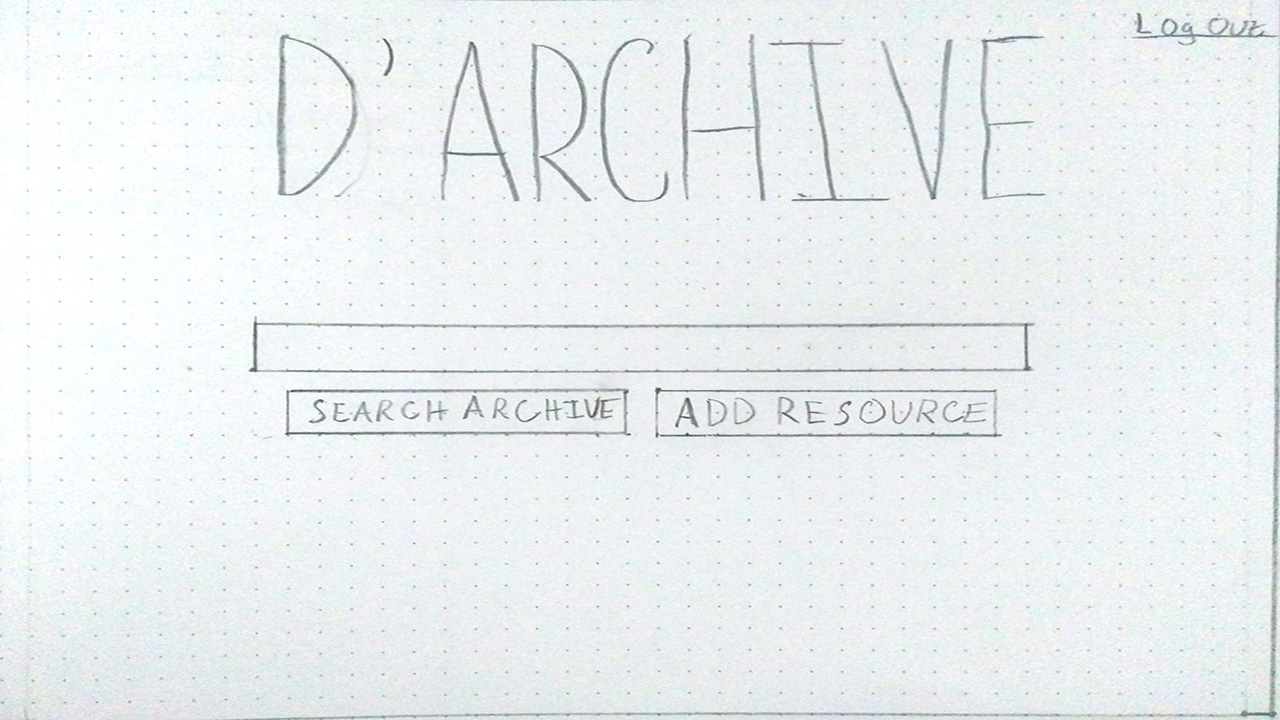 Log Out
D'ARCHIVE
SEARCH ARCHIVE
ADD RESOURCE